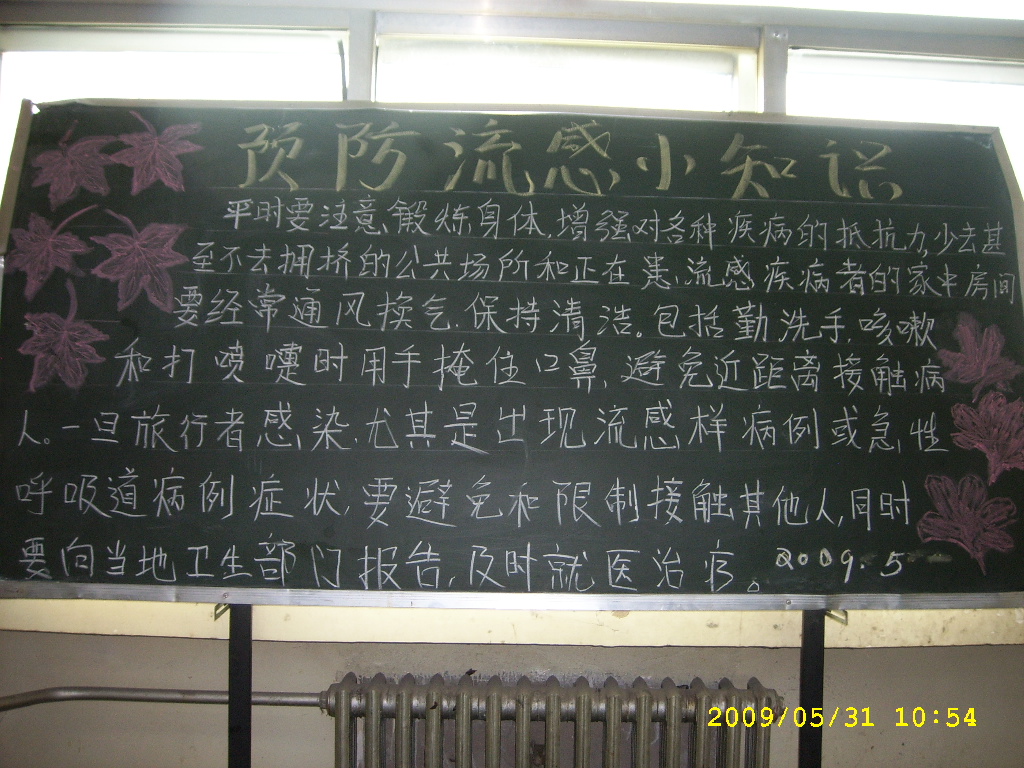 预防流感小知识
平时要注意锻炼身体,增强对各种疾病的抵抗力,少去甚
至不去拥挤的公共场所和正在患流感疾病者的家中房间
要经常通风换气,保持清洁。包括勤洗手,咳嗽
和打喷嚏时用手掩住口鼻,避免近距离接触病
人。一旦旅行者感染,尤其是出现流感样病例或急性
呼吸道病例症状,要避免和限制接触其他人,同时
要向当地卫生部门报告,及时就医治疗。2009.5
2009/05/31 10:54